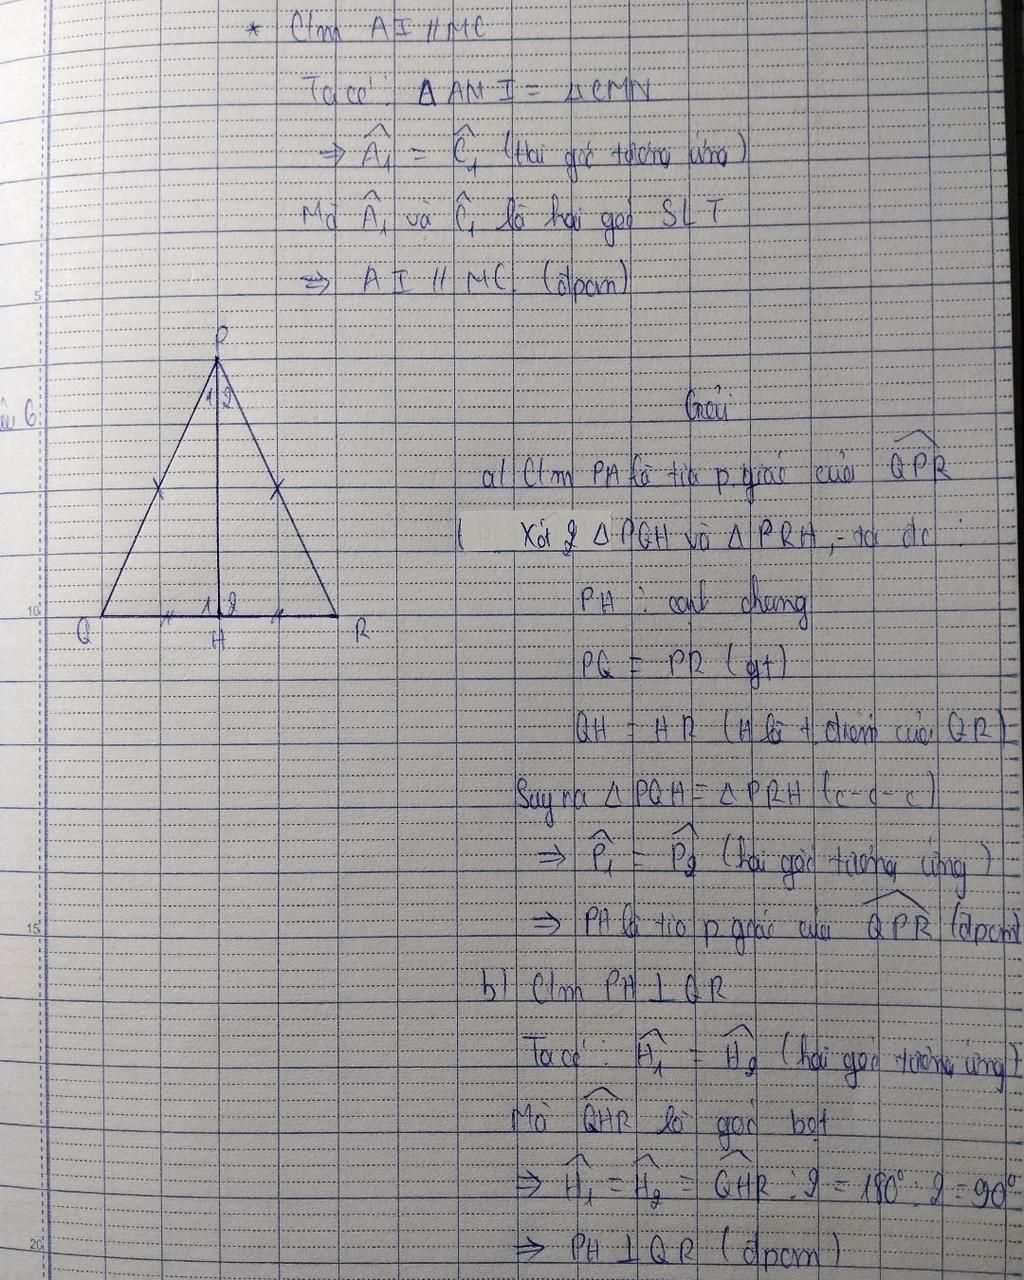 * Ctm AI // MC
Ta có: Δ ANI = Δ CMN
⇒ Â₁ = Ĉ₁ (Hai góc tương ứng)
Mà Â₁ và Ĉ₁ là hai góc SLT
⇒ AI // MC (đpcm)
P
1 2
6:
Giải
a) Ctm PH là tia p.giác của QPR
Xét 2 Δ PQH và Δ PRH, ta đc:
PH : cạnh chung
1 2
Q H R
PQ = PR (gt)
QH = HR (H là t.điểm của QR)
Suy ra Δ PQH = Δ PRH (c-c-c)
⇒ P̂₁ = P̂₂ (hai góc tương ứng)
⇒ PH là tia p.giác của QPR (đpcm)
b) Ctm PH ⊥ QR
Ta có: Ĥ₁ = Ĥ₂ (hai góc tương ứng)
Mà QHR là góc bẹt
⇒ Ĥ₁ = Ĥ₂ = QHR : 2 = 180° : 2 = 90°
⇒ PH ⊥ QR (đpcm)
5
10
15
20